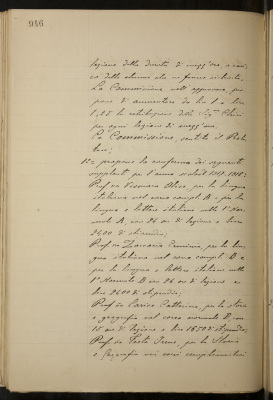 946
lezione della durata di mezz'ora a cari-
co delle alunne che ne fanno richiesta.
La Commissione nell'approvare, pro-
pone di aumentare da lire 1 a lire
1,25 la retribuzione della Sig.na
per ogni lezione di mezz'ora.
La Commissione, sentito il Ret-
tore;
1º = propone la conferma dei seguenti
supplenti per l'anno scolast. 1917-1918:
Prof.ssa Alice, per la lingua
italiana nel corso compl. B e per la
lingua e lettere italiane nella 1ª Nor-
male B, con 26 ore di lezione e lire
2600 di stipendio;
Prof.ssa Erminia, per la lin-
gua italiana nel corso compl. D e
per la lingua e lettere italiane nella
1ª Normale D con 26 ore di lezione e
lire 2600 di stipendio;
Prof.ssa Caterina, per la storia
e geografia nel corso normale B, con
15 ore di lezione e lire 1650 di stipendio;
Prof.ssa Testa Irene, per la Storia
e Geografia nei corsi complementari